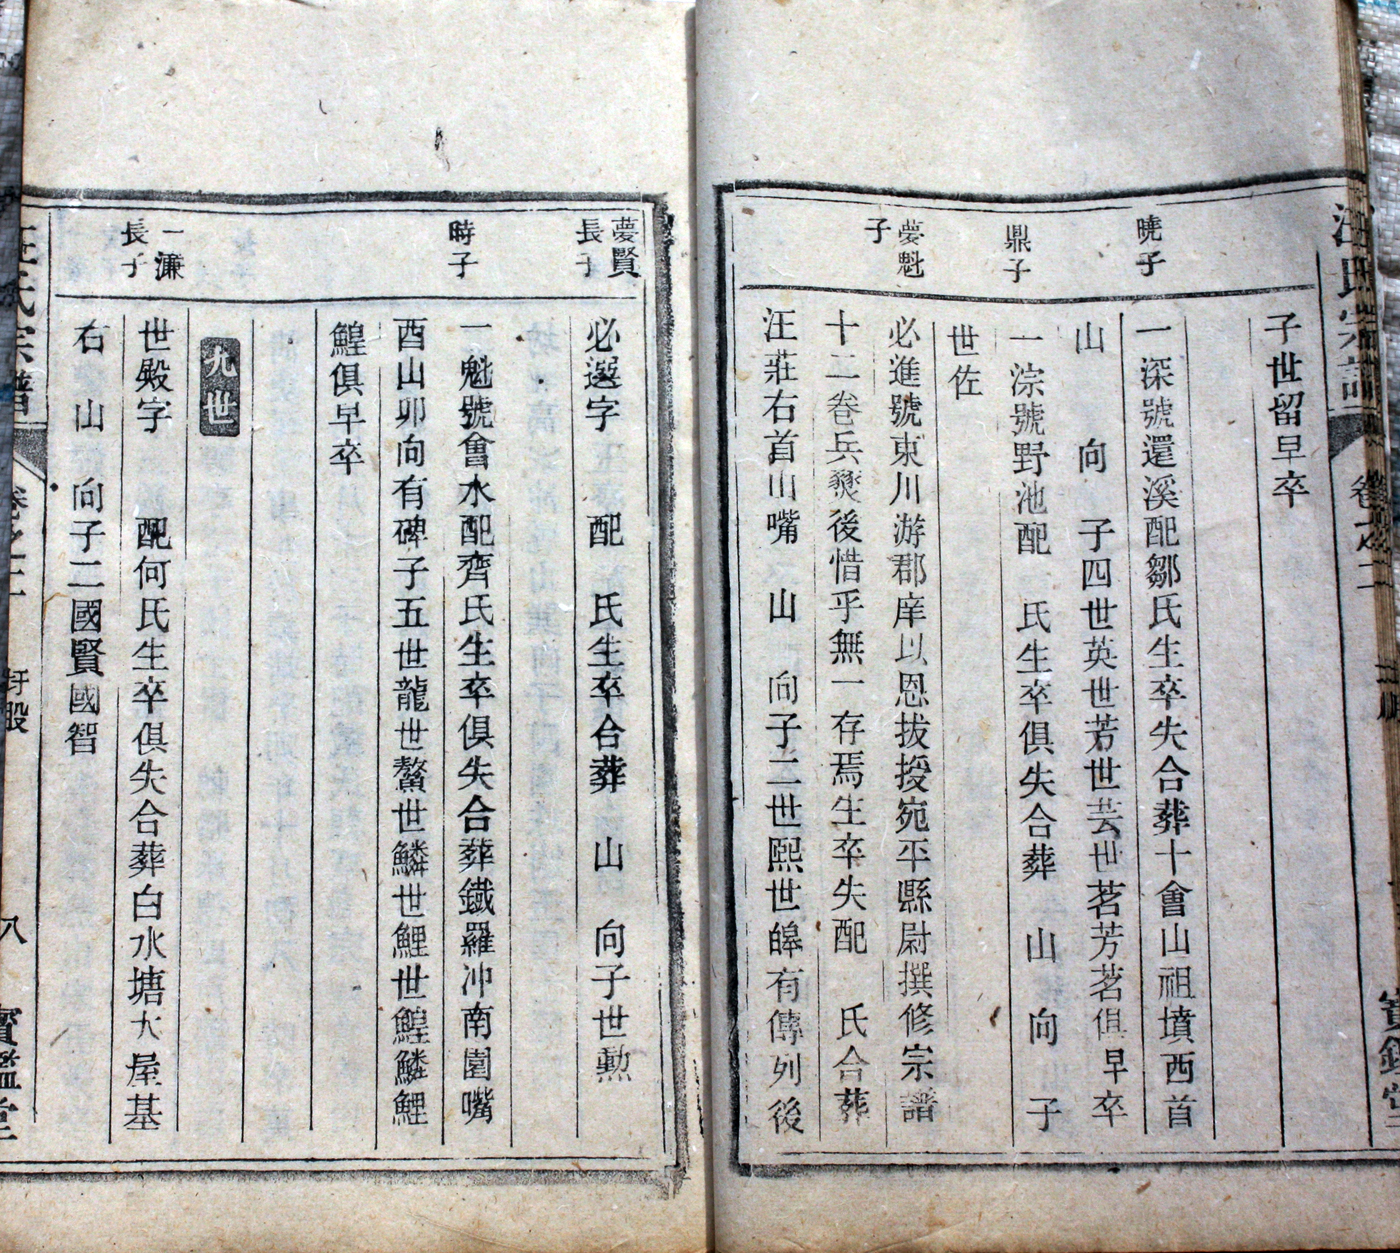 汪氏宗譜 卷之二
子世留早卒
曉子
一深號還溪配鄒氏生卒失合葬十會山祖墳西首
山 向 子四世英世芳世芸世茗芳茗俱早卒
鼎子
一淙號野池配 氏生卒俱失合葬 山 向 子
世佐
夢魁子
必進號東川游郡庠以恩拔授宛平縣尉撰修宗譜
十二卷兵燹後惜乎無一存焉生卒失配 氏合葬
汪莊右首山嘴 山 向子二世熙世皞有傳列後
夢賢長子
必選字 配 氏生卒合葬 山 向子世勲
時子
一魁號會水配齊氏生卒俱失合葬鐵羅冲南園嘴
酉山卯向有碑子五世龍世鰲世鱗世鯉世鰉鱗鯉
鰉俱早卒
九世
一濂長子
世殿字 配何氏生卒俱失合葬白水塘大屋基
右 山 向子二國賢國智
汪氏宗譜 卷之二 圩殿 八 寳鑑堂